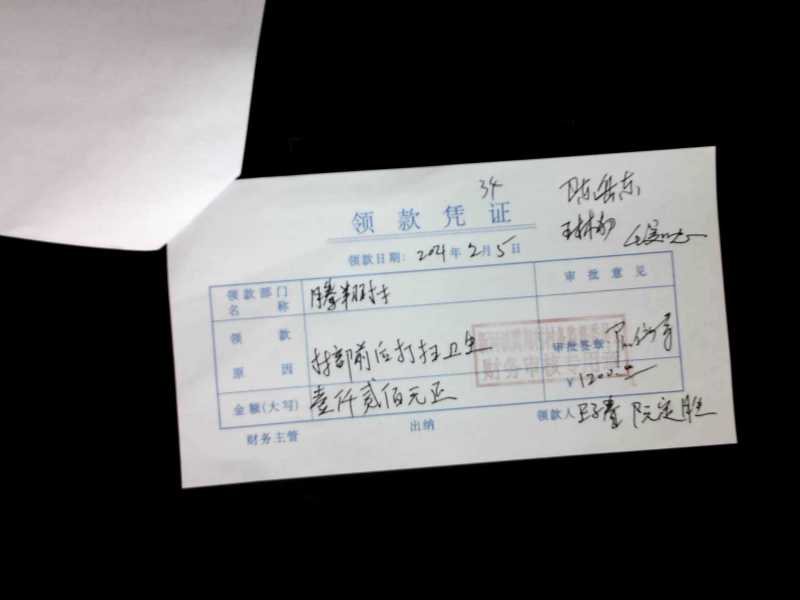 34
领款凭证
领款日期：2021年2月5日
领款部门名称 腾翔村 审批意见
领款原因 村部前后打扫卫生 审批签章
财务审核专用章
金额(大写) 壹仟贰佰元正 ￥1200
财务主管 出纳 领款人 阮定胜